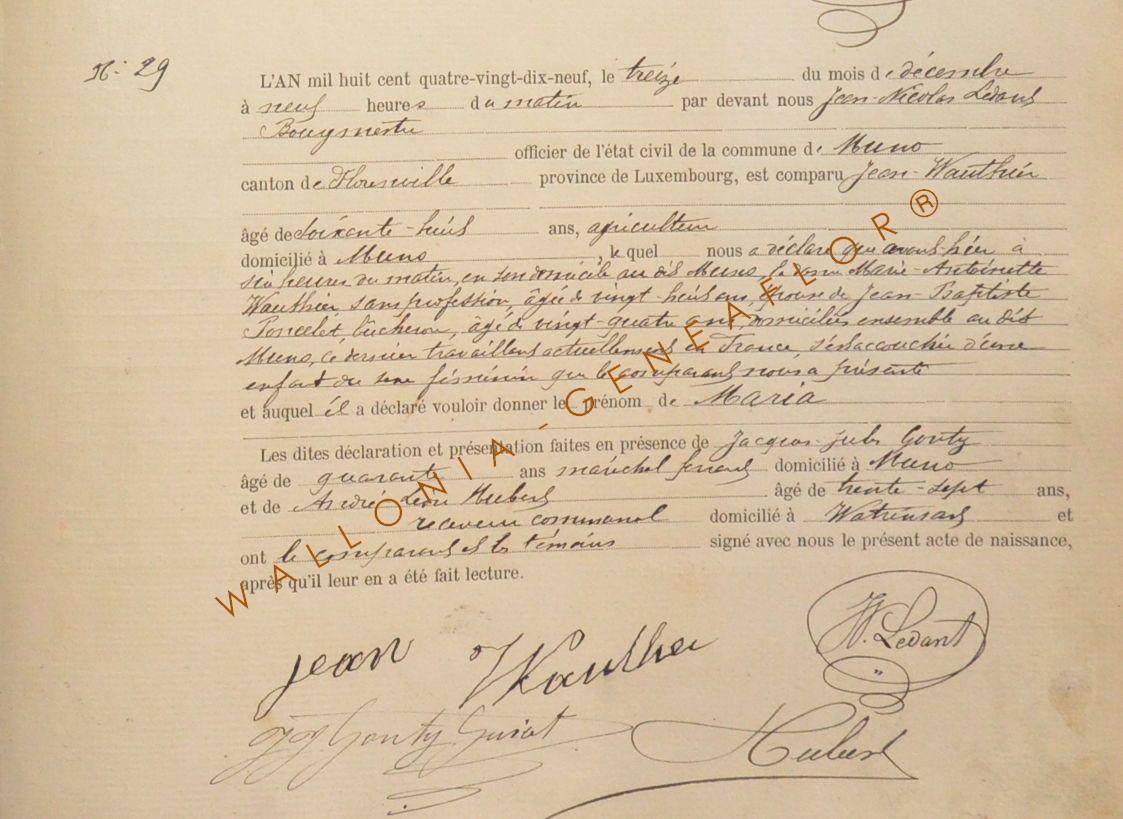 N° 29
L'AN mil huit cent quatre-vingt-dix-neuf, le treize du mois de décembre
à neuf heures du matin par devant nous Jean-Nicolas Ledant
Bourgmestre
officier de l'état civil de la commune de Muno
canton de Florenville province de Luxembourg, est comparu Jean-Wauthier
âgé de soixante-huit ans, agriculteur
domicilié à Muno, le quel nous a déclaré que avant-hier à
six heures du matin, en son domicile au dit Muno, la dame Marie-Antoinette
Wauthier, sans profession, âgée de vingt-huit ans, épouse de Jean-Baptiste
Poncelet, bûcheron, âgé de vingt-quatre ans, domiciliés ensemble au dit
Muno, ce dernier travaillant actuellement en France, s'est accouchée d'une
enfant du sexe féminin que le comparant nous a présenté
et auquel il a déclaré vouloir donner le prénom de Maria
Les dites déclaration et présentation faites en présence de Jacques-Jules Gouty
âgé de quarante ans maréchal ferrant domicilié à Muno
et de André Léon Hubert âgé de trente-sept ans,
receveur communal domicilié à Watrinsart et
ont le comparant et les témoins signé avec nous le présent acte de naissance,
après qu'il leur en a été fait lecture.
WALLONIA-GENEAFLOR®
Jean Wauthier
N. Ledant
JJ Gouty
Hubert